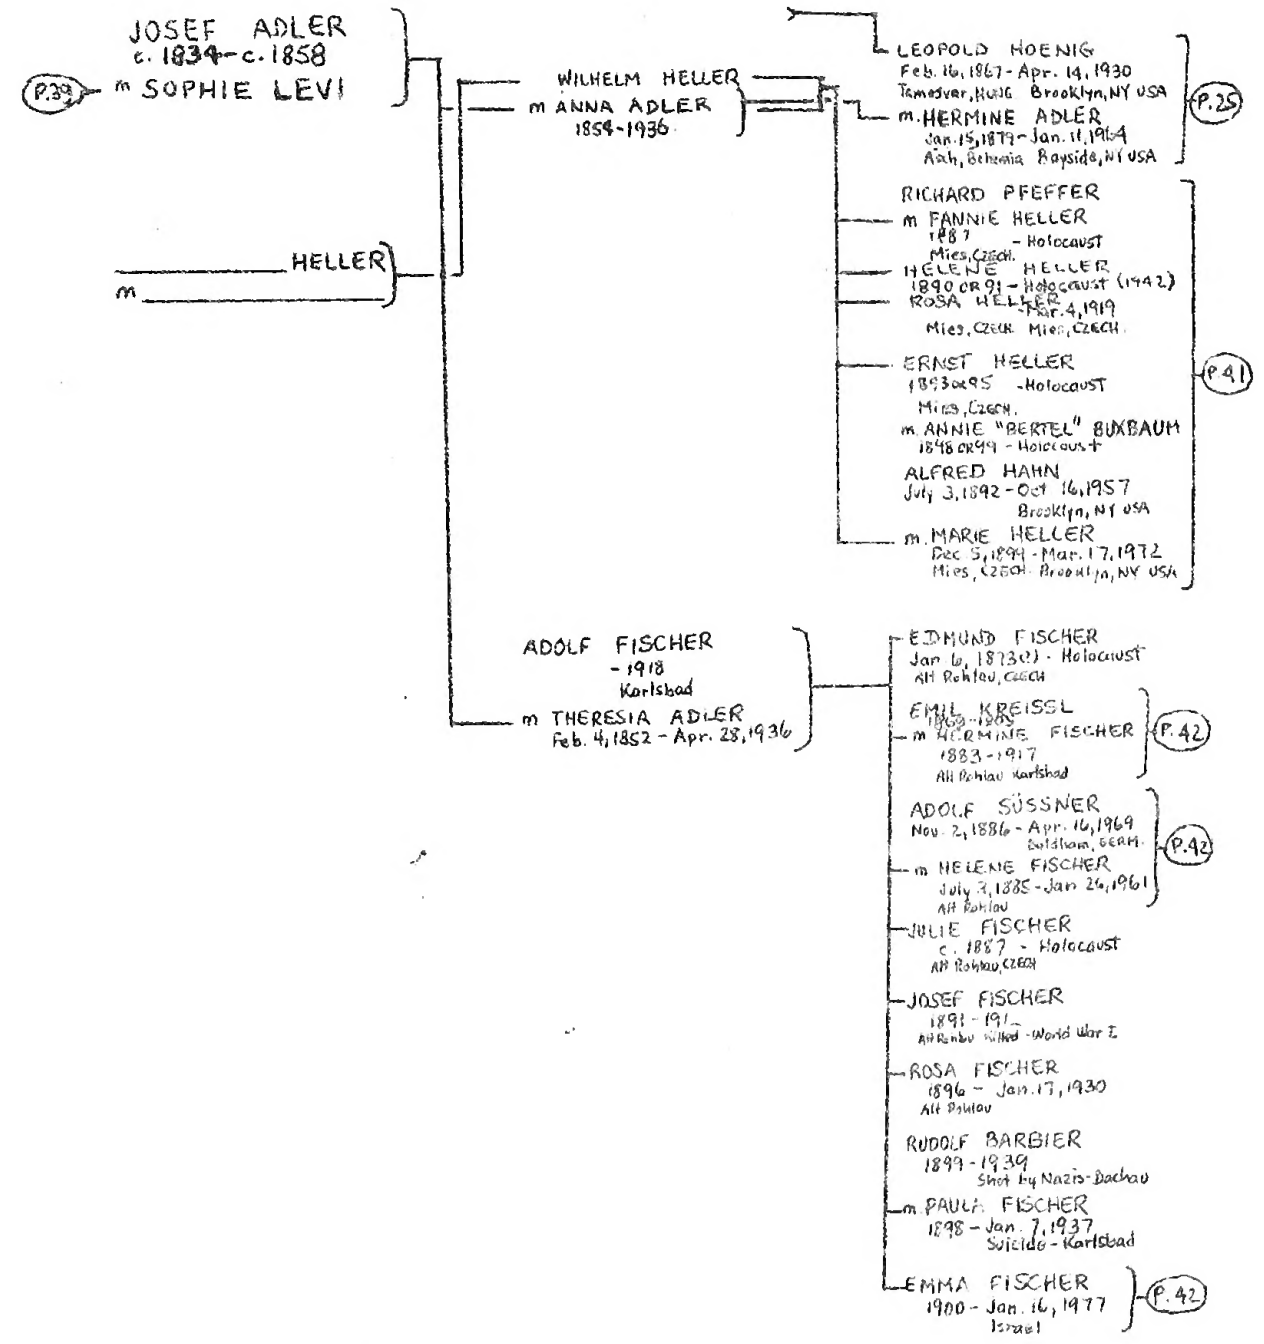 JOSEF ADLER
c. 1834-c. 1858
P.39
m SOPHIE LEVI
HELLER
m
WILHELM HELLER
m ANNA ADLER
1854-1936
ADOLF FISCHER
- 1918
Karlsbad
m THERESIA ADLER
Feb. 4, 1852 - Apr. 28, 1936
LEOPOLD HOENIG
Feb. 16, 1867 - Apr. 14, 1930
Temesvar, HUNG Brooklyn, NY USA
m. HERMINE ADLER
Jan. 15, 1879 - Jan. 11, 1964
Asch, Bohemia Bayside, NY USA
P.25
RICHARD PFEFFER
m FANNIE HELLER
1887 - Holocaust
Mies, CZECH.
HELENE HELLER
1890 OR 91 - Holocaust (1942)
ROSA HELLER
- Mar. 4, 1919
Mies, CZECH Mies, CZECH.
ERNST HELLER
1893 OR 95 - Holocaust
Mies, CZECH.
m. ANNIE "BERTEL" BUXBAUM
1898 OR 99 - Holocaust
ALFRED HAHN
July 3, 1892 - Oct 16, 1957
Brooklyn, NY USA
m. MARIE HELLER
Dec 5, 1899 - Mar. 17, 1972
Mies, CZECH. Brooklyn, NY USA
P.41
EDMUND FISCHER
Jan 6, 1873(?) - Holocaust
Alt Rohlau, CZECH
EMIL KREISSL
m HERMINE FISCHER
1883-1917
Alt Rohlau Karlsbad
P.42
ADOLF SÜSSNER
Nov. 2, 1886 - Apr. 16, 1969
GERM.
m HELENE FISCHER
July 3, 1885 - Jan 26, 1961
Alt Rohlau
P.42
JULIE FISCHER
c. 1887 - Holocaust
Alt Rohlau, CZECH
JOSEF FISCHER
1891 - 191_
Alt Rohlau Killed - World War I
ROSA FISCHER
1896 - Jan. 17, 1930
Alt Rohlau
RUDOLF BARBIER
1899 - 1939
Shot by Nazis - Dachau
m. PAULA FISCHER
1898 - Jan. 7, 1937
Suicide - Karlsbad
EMMA FISCHER
1900 - Jan. 16, 1977
Israel
P.42